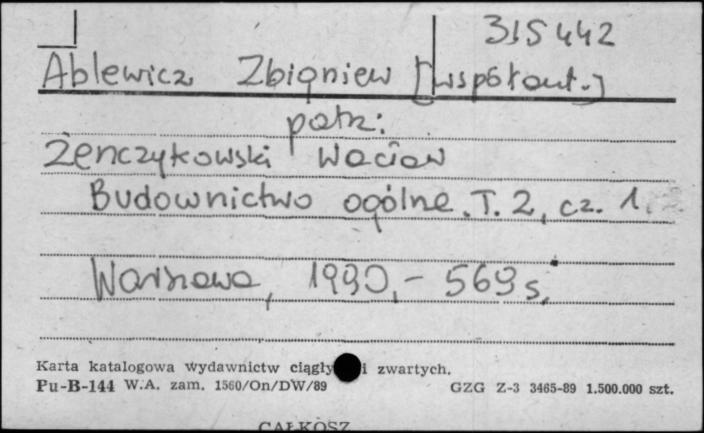 315442
Ablewicz Zbigniew [współaut.]
patrz:
Żenczykowski Wacław
Budownictwo ogólne. T. 2, cz. 1.
Warszawa, 1990, - 569 s.
Karta katalogowa wydawnictw ciągły i zwartych.
Pu-B-144 W.A. zam. 1560/On/DW/89 GZG Z-3 3465-89 1.500.000 szt.